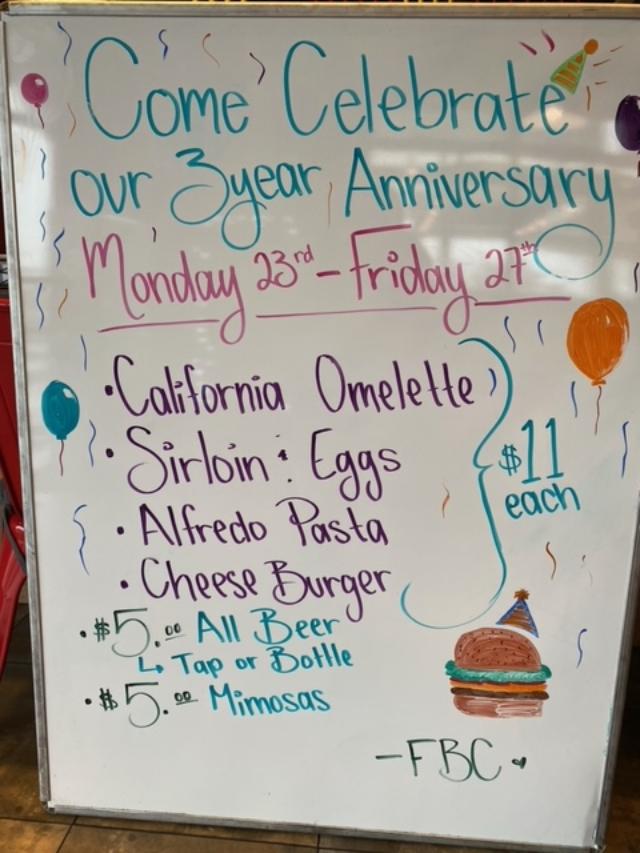 Come Celebrate
our 3year Anniversary
Monday 23rd - Friday 27th
• California Omelette
• Sirloin : Eggs
• Alfredo Pasta
• Cheese Burger
$11
each
• $5.00 All Beer
↳ Tap or Bottle
• $5.00 Mimosas
- FBC ♥